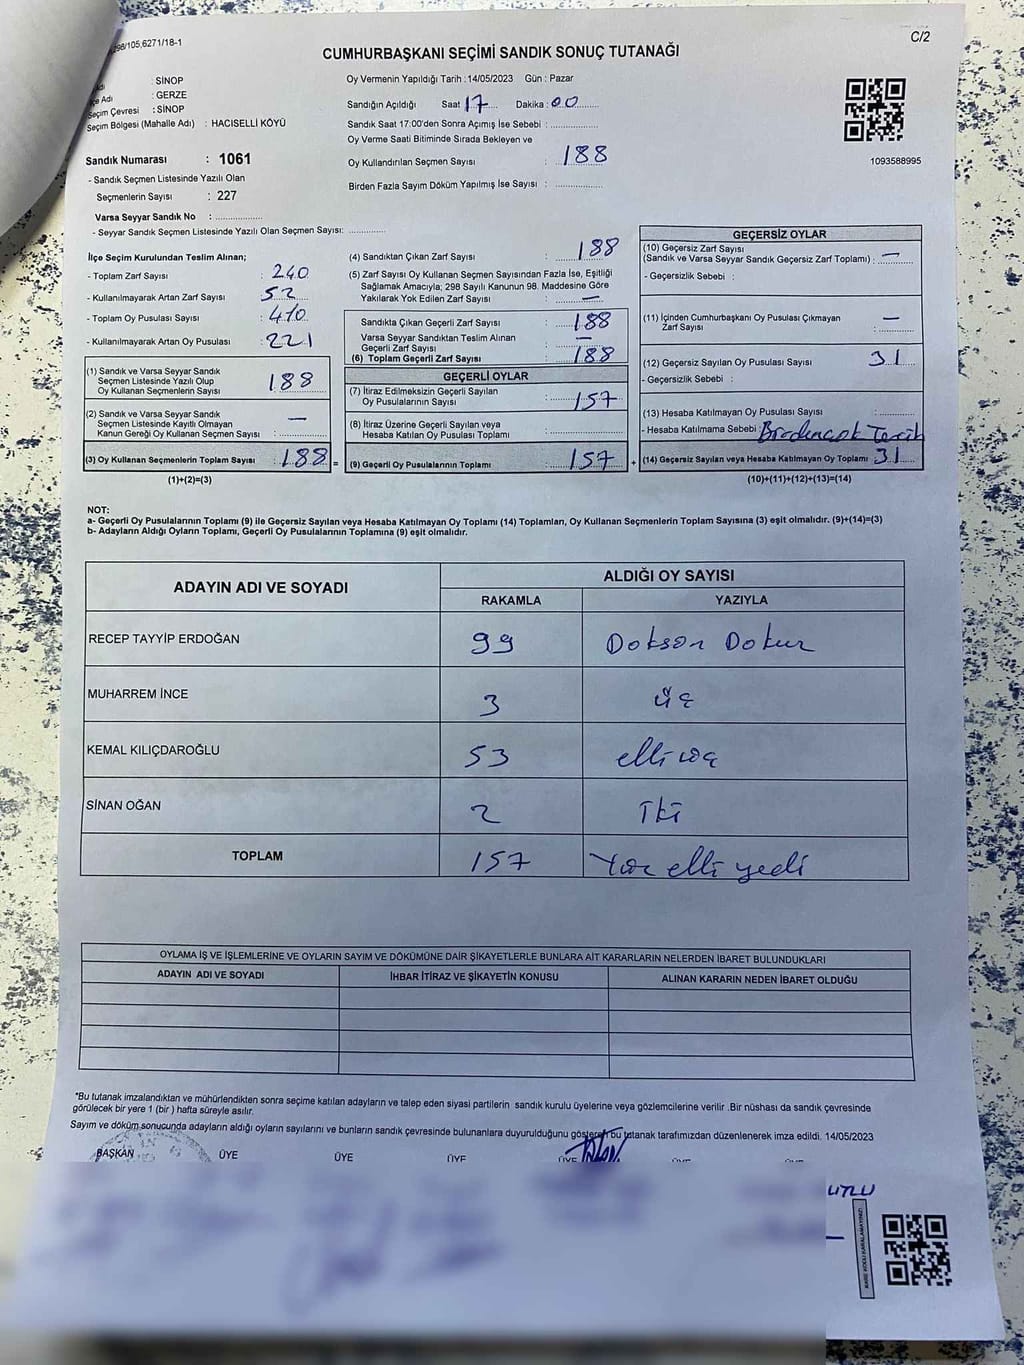 298/105,6271/18-1
C/2
CUMHURBAŞKANI SEÇİMİ SANDIK SONUÇ TUTANAĞI
: SİNOP
İlçe Adı : GERZE
Seçim Çevresi : SİNOP
Seçim Bölgesi (Mahalle Adı) : HACISELLİ KÖYÜ
Sandık Numarası : 1061
- Sandık Seçmen Listesinde Yazılı Olan
Seçmenlerin Sayısı : 227
Varsa Seyyar Sandık No : ..................
- Seyyar Sandık Seçmen Listesinde Yazılı Olan Seçmen Sayısı: .............
Oy Vermenin Yapıldığı Tarih :14/05/2023 Gün : Pazar
Sandığın Açıldığı Saat 17 Dakika : 00
Sandık Saat 17:00'den Sonra Açımış İse Sebebi : ................
Oy Verme Saati Bitiminde Sırada Bekleyen ve
Oy Kullandırılan Seçmen Sayısı : 188
Birden Fazla Sayım Döküm Yapılmış İse Sayısı : ................
1093588995
İlçe Seçim Kurulundan Teslim Alınan;
- Toplam Zarf Sayısı : 240
- Kullanılmayarak Artan Zarf Sayısı : 52
- Toplam Oy Pusulası Sayısı : 410
- Kullanılmayarak Artan Oy Pusulası : 221
(1) Sandık ve Varsa Seyyar Sandık
Seçmen Listesinde Yazılı Olup
Oy Kullanan Seçmenlerin Sayısı : 188
(2) Sandık ve Varsa Seyyar Sandık
Seçmen Listesinde Kayıtlı Olmayan
Kanun Gereği Oy Kullanan Seçmen Sayısı : —
(3) Oy Kullanan Seçmenlerin Toplam Sayısı : 188 =
(1)+(2)=(3)
(4) Sandıktan Çıkan Zarf Sayısı : 188
(5) Zarf Sayısı Oy Kullanan Seçmen Sayısından Fazla İse, Eşitliği
Sağlamak Amacıyla; 298 Sayılı Kanunun 98. Maddesine Göre
Yakılarak Yok Edilen Zarf Sayısı : —
Sandıkta Çıkan Geçerli Zarf Sayısı : 188
Varsa Seyyar Sandıktan Teslim Alınan
Geçerli Zarf Sayısı : —
(6) Toplam Geçerli Zarf Sayısı : 188
GEÇERLİ OYLAR
(7) İtiraz Edilmeksizin Geçerli Sayılan
Oy Pusulalarının Sayısı : 157
(8) İtiraz Üzerine Geçerli Sayılan veya
Hesaba Katılan Oy Pusulası Toplamı :
(9) Geçerli Oy Pusulalarının Toplamı : 157 +
GEÇERSİZ OYLAR
(10) Geçersiz Zarf Sayısı
(Sandık ve Varsa Seyyar Sandık Geçersiz Zarf Toplamı) : —
- Geçersizlik Sebebi :
(11) İçinden Cumhurbaşkanı Oy Pusulası Çıkmayan
Zarf Sayısı : —
(12) Geçersiz Sayılan Oy Pusulası Sayısı : 31
- Geçersizlik Sebebi :
(13) Hesaba Katılmayan Oy Pusulası Sayısı :
- Hesaba Katılmama Sebebi : Birdencok Tercih
(14) Geçersiz Sayılan veya Hesaba Katılmayan Oy Toplamı : 31
(10)+(11)+(12)+(13)=(14)
NOT:
a- Geçerli Oy Pusulalarının Toplamı (9) ile Geçersiz Sayılan veya Hesaba Katılmayan Oy Toplamı (14) Toplamları, Oy Kullanan Seçmenlerin Toplam Sayısına (3) eşit olmalıdır. (9)+(14)=(3)
b- Adayların Aldığı Oyların Toplamı, Geçerli Oy Pusulalarının Toplamına (9) eşit olmalıdır.
ADAYIN ADI VE SOYADI ALDIĞI OY SAYISI
RAKAMLA YAZIYLA
RECEP TAYYİP ERDOĞAN 99 Dokson Dokuz
MUHARREM İNCE 3 üç
KEMAL KILIÇDAROĞLU 53 elli üç
SİNAN OĞAN 2 iki
TOPLAM 157 Yüz elli yedi
OYLAMA İŞ VE İŞLEMLERİNE VE OYLARIN SAYIM VE DÖKÜMÜNE DAİR ŞİKAYETLERLE BUNLARA AİT KARARLARIN NELERDEN İBARET BULUNDUKLARI
ADAYIN ADI VE SOYADI İHBAR İTİRAZ VE ŞİKAYETİN KONUSU ALINAN KARARIN NEDEN İBARET OLDUĞU
*Bu tutanak imzalandıktan ve mühürlendikten sonra seçime katılan adayların ve talep eden siyasi partilerin sandık kurulu üyelerine veya gözlemcilerine verilir .Bir nüshası da sandık çevresinde
görülecek bir yere 1 (bir ) hafta süreyle asılır.
Sayım ve döküm sonucunda adayların aldığı oyların sayılarını ve bunların sandık çevresinde bulunanlara duyurulduğunu gösteren bu tutanak tarafımızdan düzenlenerek imza edildi. 14/05/2023
BAŞKAN ÜYE ÜYE ÜYE ÜYE ÜYE ÜYE
UTLU
KARE KODU KARALAMAYINIZ!